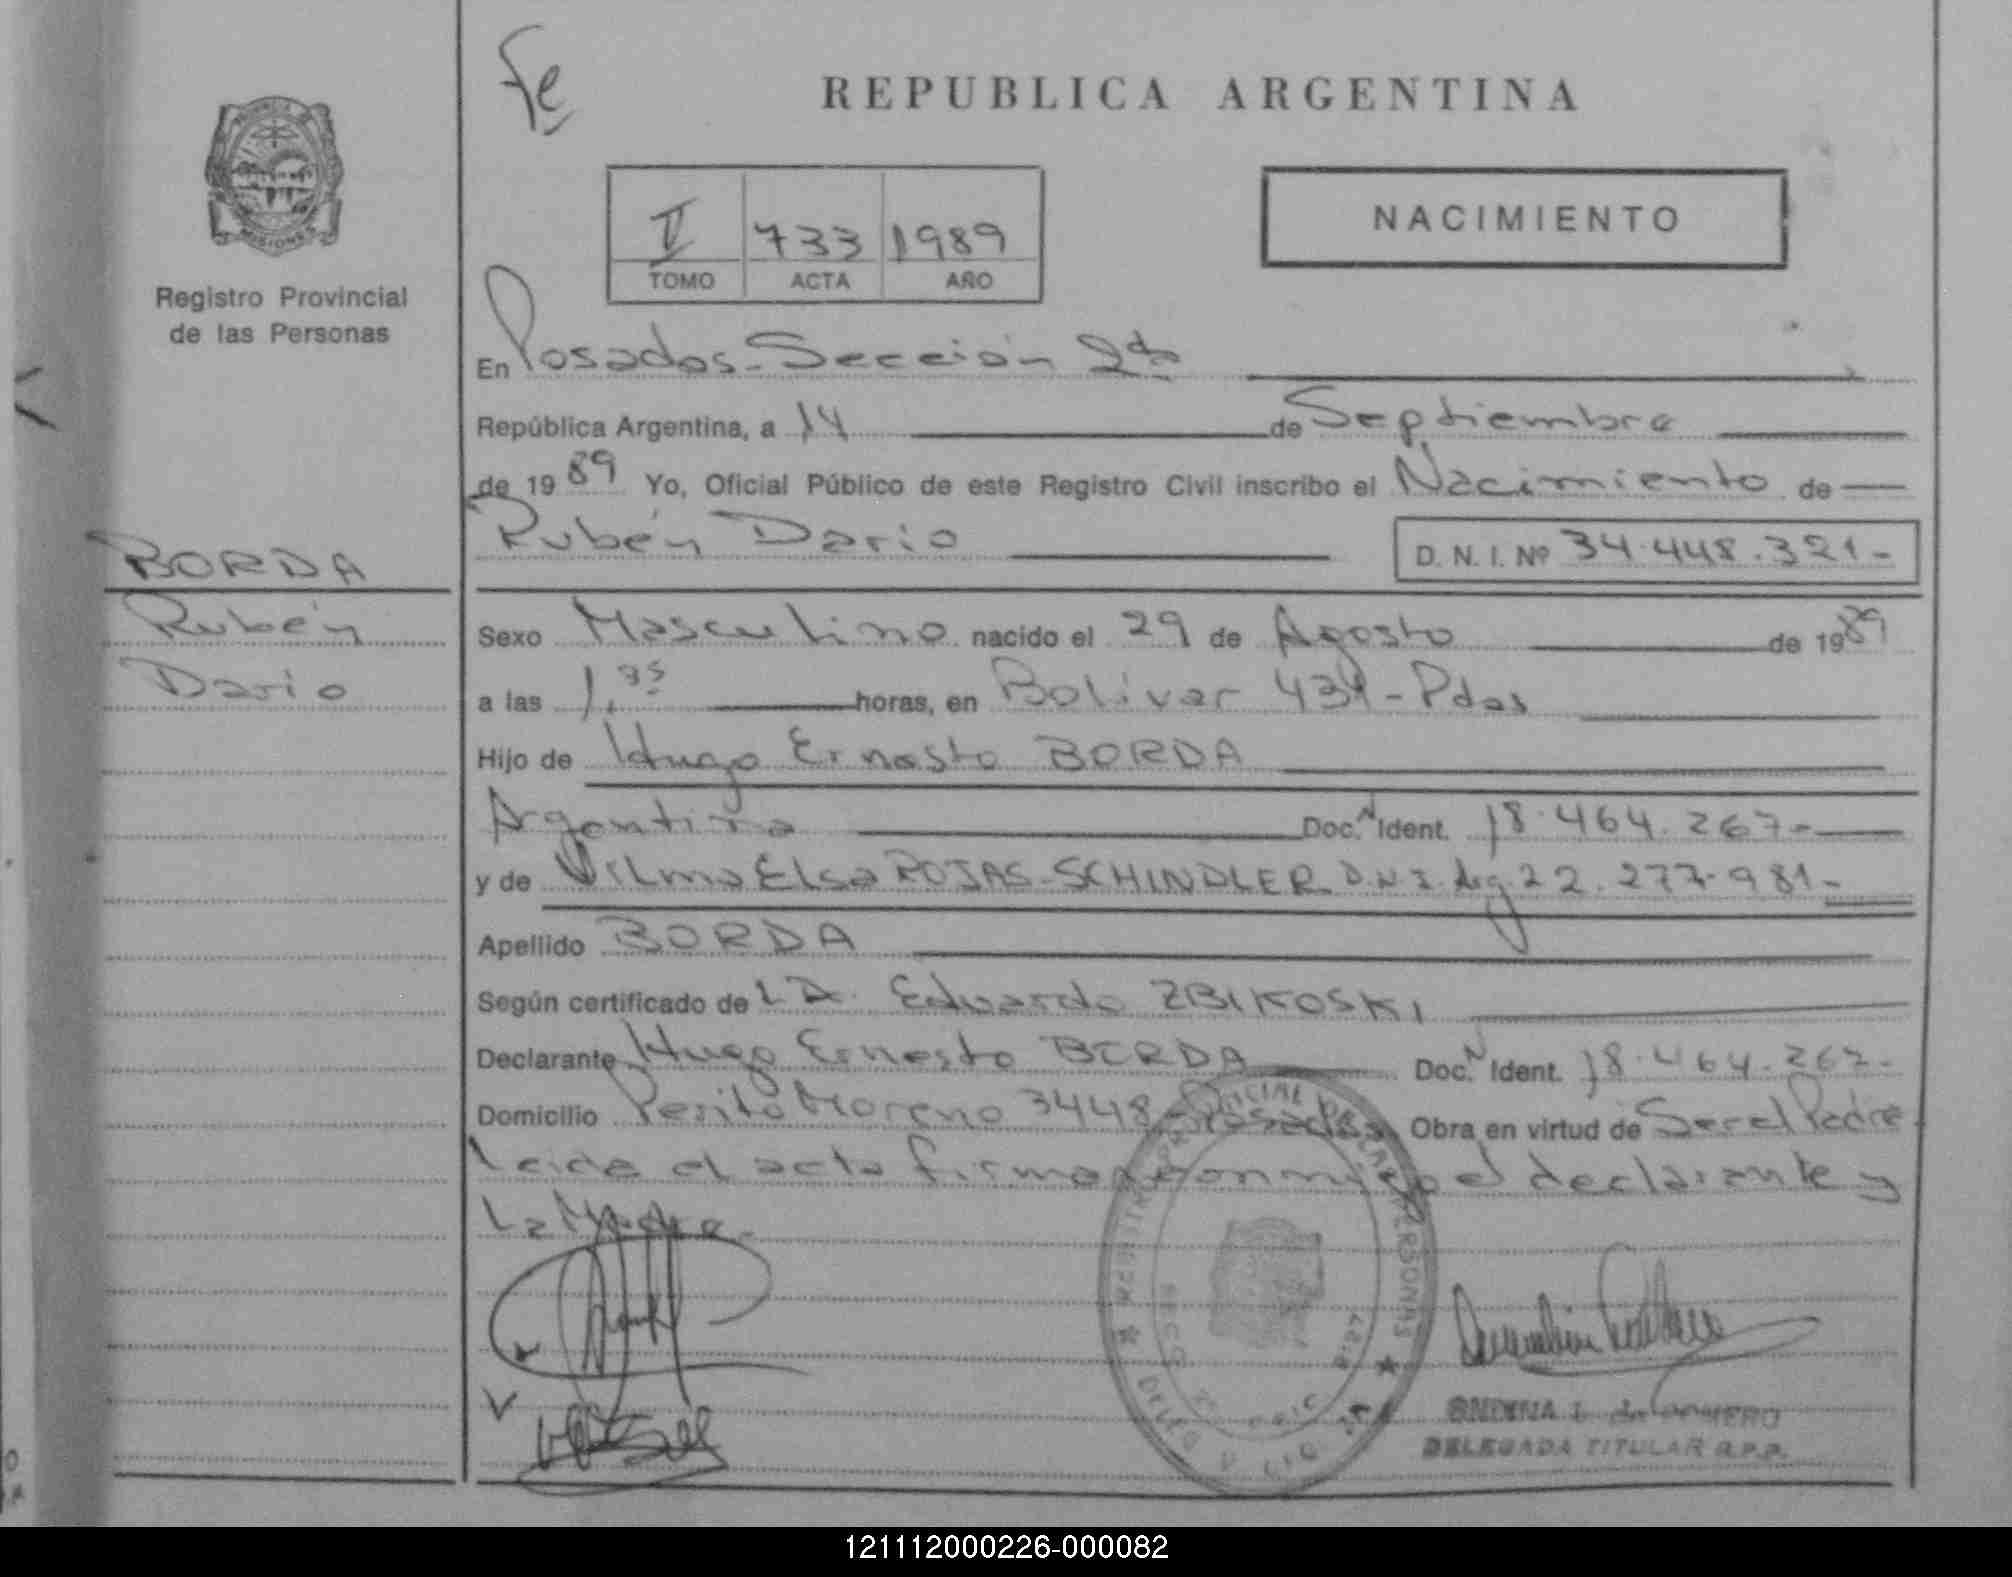 Fe
REPUBLICA ARGENTINA
PROVINCIA DE
MISIONES
Registro Provincial
de las Personas
II 733 1989
TOMO ACTA AÑO
NACIMIENTO
En Posadas - Sección 2da
República Argentina, a 14 de Septiembre
de 1989 Yo, Oficial Público de este Registro Civil inscribo el Nacimiento de
Rubén Dario D. N. I. Nº 34.448.321-
BORDA
Rubén
Dario
Sexo Masculino nacido el 29 de Agosto de 1989
a las 1.35 horas, en Bolivar 434 - Pdas
Hijo de Hugo Ernesto BORDA
Argentina Doc. Ident. 18.464.267-
y de Vilma Elsa ROJAS-SCHINDLER D.N.I. Arg 22.277.981-
Apellido BORDA
Según certificado de Eduardo ZBIKOSKI
Declarante Hugo Ernesto BORDA Doc. Ident. 18.464.267-
Domicilio Perito Moreno 3448 - Posadas Obra en virtud de Ser el Padre
Leida el acta firman conmigo el declarante y
La Madre.
DELEGADA TITULAR R.P.P.
121112000226-000082